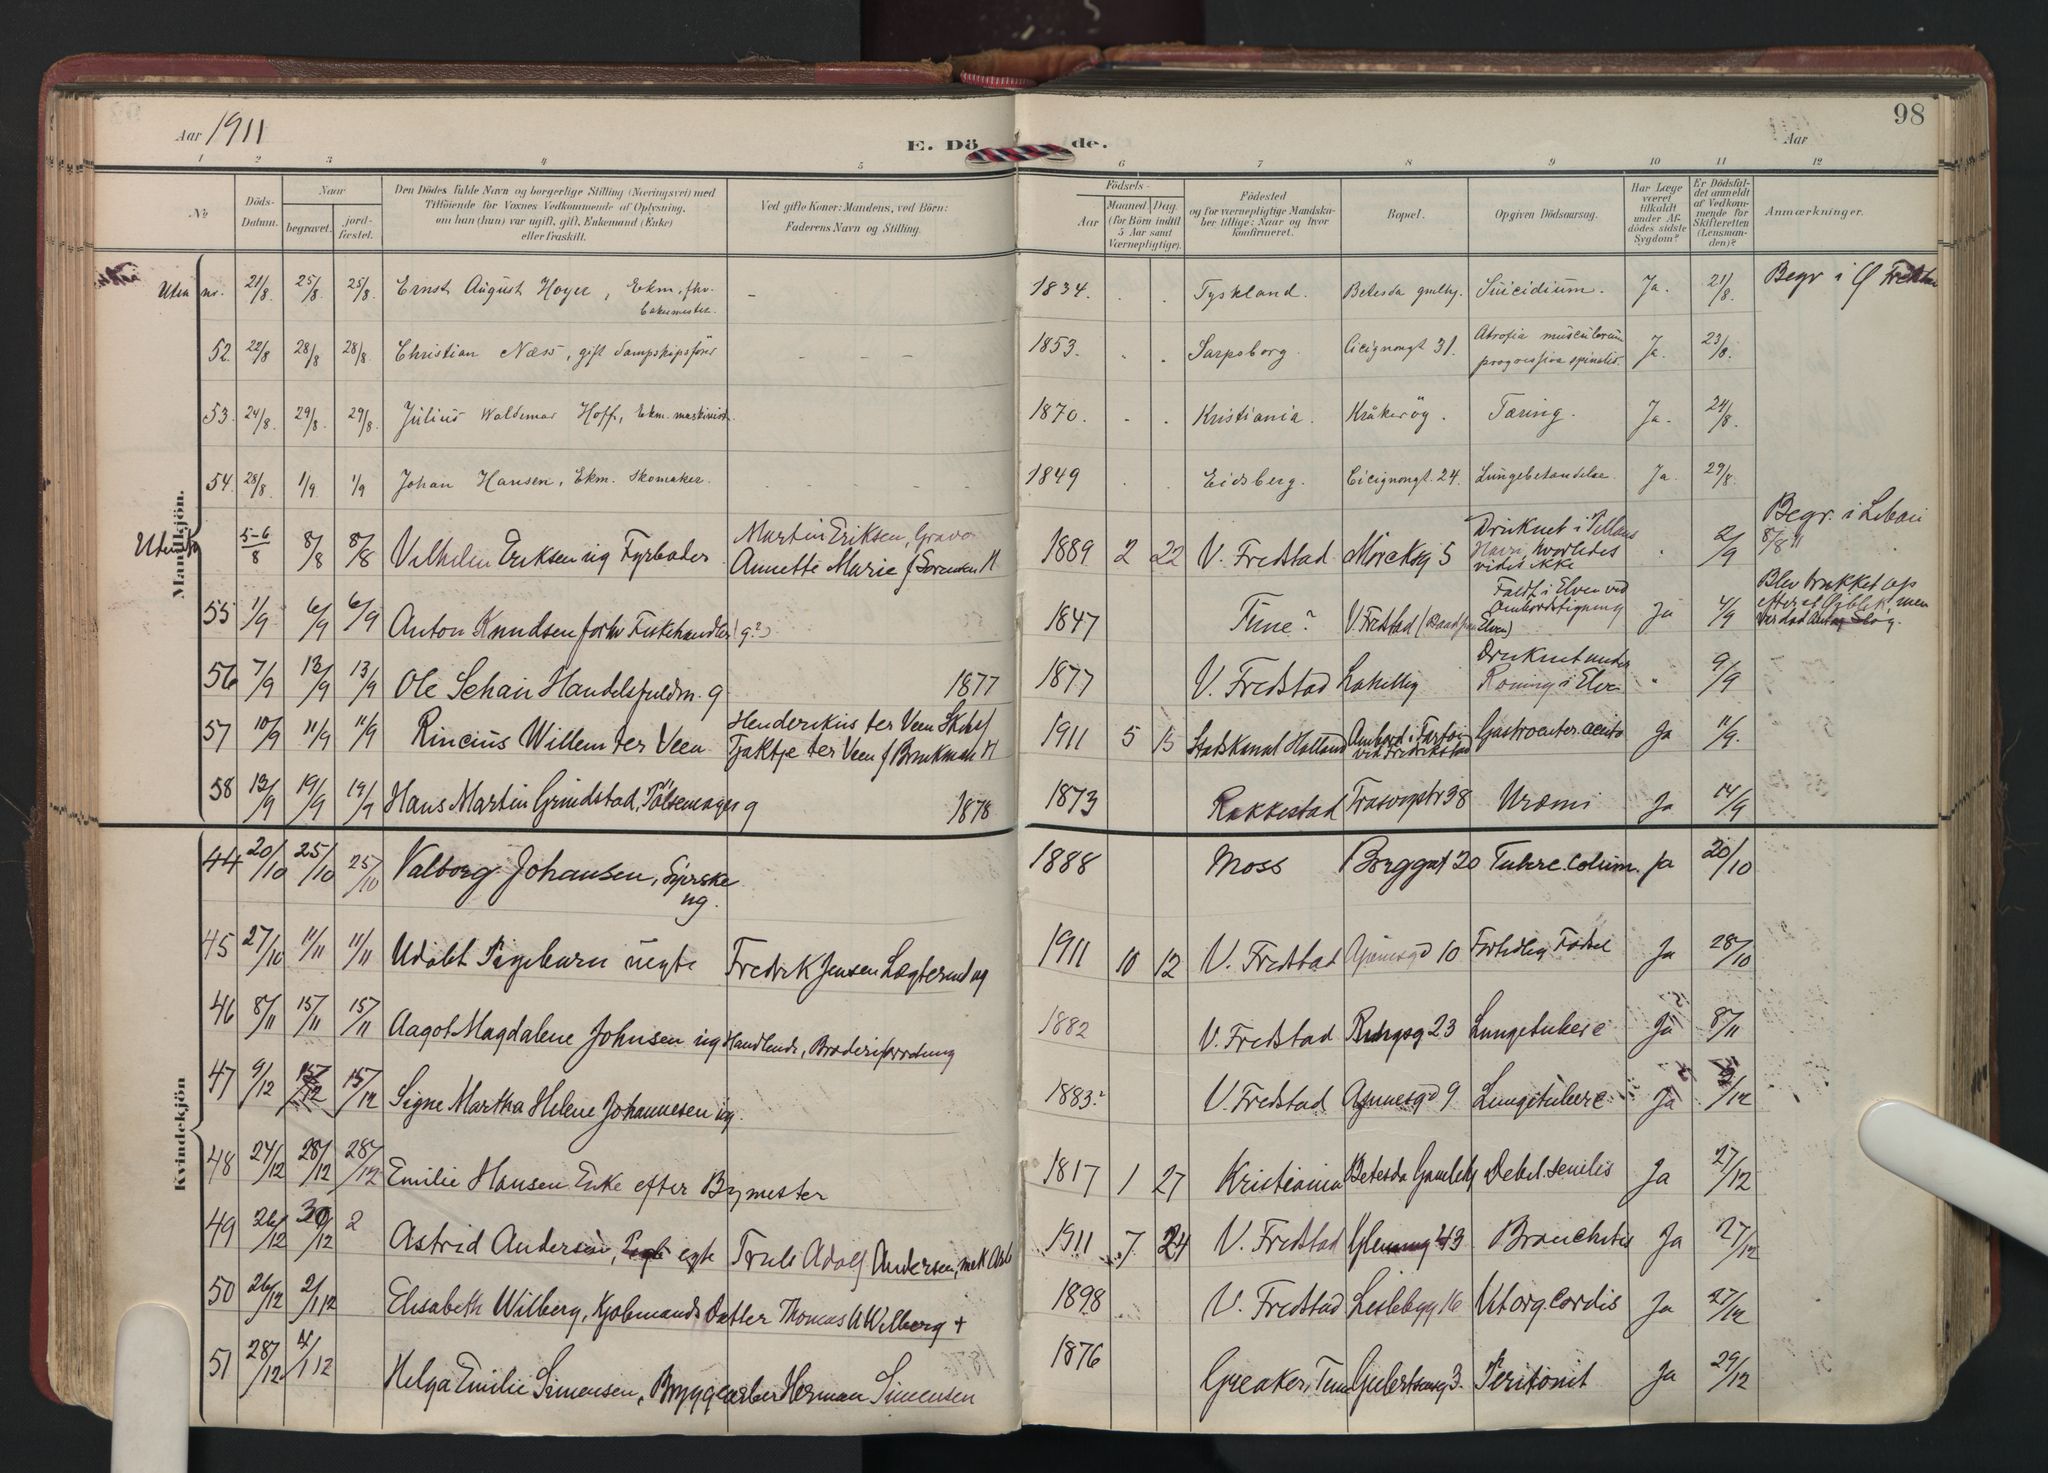 98
Aar 1911
E. Dö de.
Aar
1 2 3 4 5 6 7 8 9 10 11 12
No
Döds-Datum.
Naar
begravet.
jord-fæstet.
Den Dödes fulde Navn og borgerlige Stilling (Næringsvei) med
Tilföiende for Voxnes Vedkommende af Oplysning,
om han (hun) var ugift, gift, Enkemand (Enke)
eller fraskilt.
Ved gifte Koner: Mandens, ved Börn:
Faderens Navn og Stilling.
Födsels-
Aar
Maaned Dag
(for Börn indtil
5 Aar samt
Værnepligtige).
Födested
og for værnepligtige Mandska-
ber tillige: Naar og hvor
konfirmeret.
Bopæl.
Opgiven Dödsaarsag.
Har Læge
været
tilkaldt
under Af-
dödes sidste
Sygdom?
Er Dödsfal-
det anmeldt
af Vedkom-
mende for
Skifteretten
(Lensman-
den)?
Anmærkninger.
Mandkjön.
Uten no. 21/8 25/8 25/8 Ernst August Hoyer, Ekm. fhv. - - 1834. . . Tyskland. Betesda gmlhj. Suicidium. Ja. 21/8 Begr i
52. 22/8 28/8 28/8 Christian Næss, gift Dampskipsfører - - - 1853. . . Sarpsborg. Cicignongt 31. Atrofia musculorum progressiva spinalis. Ja. 23/8.
53. 24/8. 29/8. 29/8. Julius Waldemar Hoff, Ekm. maskinist. 1870. . . Kristiania. Kråkerøy. Tæring. Ja. 24/8.
54. 28/8. 1/9 1/9 Johan Hansen, Ekm. Skomaker. 1849 . . Eidsberg. Cicignongt. 24. Lungebetændelse. Ja. 29/8.
5-6/8 8/8 8/8 Vilhelm Eriksen ug Fyrbøder Martin Eriksen, Annette Marie f Sørensen 1889 2 22 V. Fredstad 5 Druknet i vides ikke . 2/9 Begr. i Libau 8/8 11
55 1/9 6/9 6/9 Anton Knudsen forhv Fiskehandler (g?) 1847 Tune? V. Fredstad Faldt i Elven ved Ombordstigning Ja 4/9 Blev trukket op
56 7/9 13/9 13/9 Ole Schau Handelsfuldm. g 1877 1877 V. Fredstad Druknet under Roning i Elven " 9/9
57 10/9 11/9 11/9 Rincius Willem ter Veen Henderikus ter Veen Tjaktje ter Veen f Brukman 1911 5 15 Stadskanal Holland Ombord i Fartøi ved Fredrikstad Gastroenter. acuta Ja 11/9.
58 13/9 19/9 19/9 Hans Martin Grimstad, Pølsemager g 1878 1873 Rakkestad 38 Uræmi Ja 14/9
Kvindekjön
44 20/10 25/10 25/10 Valborg Johansen, Syerske ug. 1888 Moss Borggat 20 Tuberc. Ja 20/10
45 27/10 11/11 11/11 Udøbt Pigebarn uegte Fredrik Jensen 1911 10 12 V. Fredstad 10 Fortidlig Fødsel Ja 28/10
46 8/11 15/11 15/11 Aagot Magdalene Johnsen ug Handlende, Broderiforretning 1882 V. Fredstad 23 Lungetuberc Ja 8/11
47 9/12 15/12 15/12 Signe Martha Helene Johannesen ug. 1883. V. Fredstad 9 Lungetuberc Ja /12
48 24/12 28/12 28/12 Emilie Hansen Enke efter Bymester 1817 1 27 Kristiania Betesda Gamlehj Debil. senilis Ja 27/12
49 26/12 30/12 2 Astrid Andersen, egte Truls Adolf Andersen, mek 1911 7 24 V. Fredstad 43 Bronchitis Ja 27/12
50 26/12 2/1 12 Elisabeth Wilberg, Kjøbmands Datter Thomas Wilberg + 1898 V. Fredstad 16 Vit org. cordis Ja 27/12
51 28/12 4/1 12 Helga Emilie Simensen, Bryggearber Herman Simensen 1876 Greaker, Tune 3. Peritonit Ja 29/12